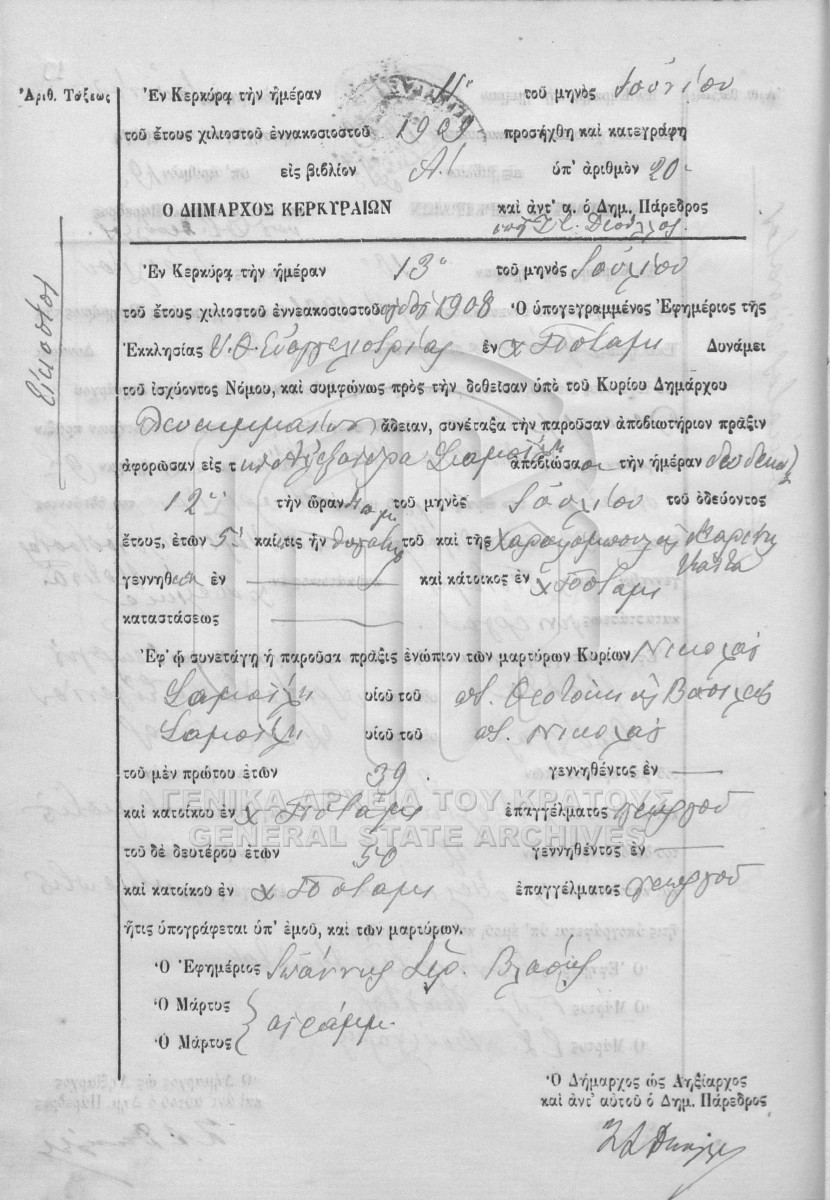 Ἀριθ. Τάξεως
Ἐν Κερκύρᾳ τὴν ἡμέραν 11 τοῦ μηνὸς Ἰουνίου
τοῦ ἔτους χιλιοστοῦ ἐννακοσιοστοῦ 1909 προσήχθη καὶ κατεγράφη
εἰς βιβλίον Α! ὑπ' ἀριθμὸν 20
Ο ΔΗΜΑΡΧΟΣ ΚΕΡΚΥΡΑΙΩΝ καὶ ἀντ' α. ὁ Δημ. Πάρεδρος
Εἰκοστὸς
Ἐν Κερκύρᾳ τὴν ἡμέραν 13 τοῦ μηνὸς Ἰουλίου
τοῦ ἔτους χιλιοστοῦ ἐννεακοσιοστοῦ 1908 Ὁ ὑπογεγραμμένος Ἐφημέριος τῆς
Ἐκκλησίας Υ.Θ. Εὐαγγελιστρίας ἐν χ Ποτάμι Δυνάμει
τοῦ ἰσχύοντος Νόμου, καὶ συμφώνως πρὸς τὴν δοθεῖσαν ὑπὸ τοῦ Κυρίου Δημάρχου
Λευκιμμαίων ἄδειαν, συνέταξα τὴν παροῦσαν ἀποβιωτήριον πρᾶξιν
ἀφορῶσαν εἰς τ Ἀλεξάνδρα Σαμοΐλη ἀποβιώσασα τὴν ἡμέραν δωδεκάτη
12 τὴν ὥραν τοῦ μηνὸς Ἰουλίου τοῦ ὁδεύοντος
ἔτους, ἐτῶν καὶ τις ἦν θυγάτηρ τοῦ καὶ τῆς
γεννηθεῖσα ἐν καὶ κάτοικος ἐν χ Ποτάμι
καταστάσεως
Ἐφ' ᾧ συνετάγη ἡ παροῦσα πρᾶξις ἐνώπιον τῶν μαρτύρων Κυρίων Νικολάου
Σαμοΐλη υἱοῦ τοῦ ποτ. Θεοτόκη καὶ Βασιλείου
Σαμοΐλη υἱοῦ τοῦ ποτ. Νικολάου
τοῦ μὲν πρώτου ἐτῶν 39 γεννηθέντος ἐν
καὶ κατοίκου ἐν χ Ποτάμι ἐπαγγέλματος γεωργοῦ
ΓΕΝΙΚΑ ΑΡΧΕΙΑ ΤΟΥ ΚΡΑΤΟΥΣ
GENERAL STATE ARCHIVES
τοῦ δὲ δευτέρου ἐτῶν 50 γεννηθέντος ἐν
καὶ κατοίκου ἐν χ Ποτάμι ἐπαγγέλματος γεωργοῦ
ἥτις ὑπογράφεται ὑπ' ἐμοῦ, καὶ τῶν μαρτύρων.
Ὁ Ἐφημέριος Ἰωάννης Ἱερ. Βλάσης
Ὁ Μάρτυς
ἀγράμμ.
Ὁ Μάρτυς
Ὁ Δήμαρχος ὡς Ληξίαρχος
καὶ ἀντ' αὐτοῦ ὁ Δημ. Πάρεδρος